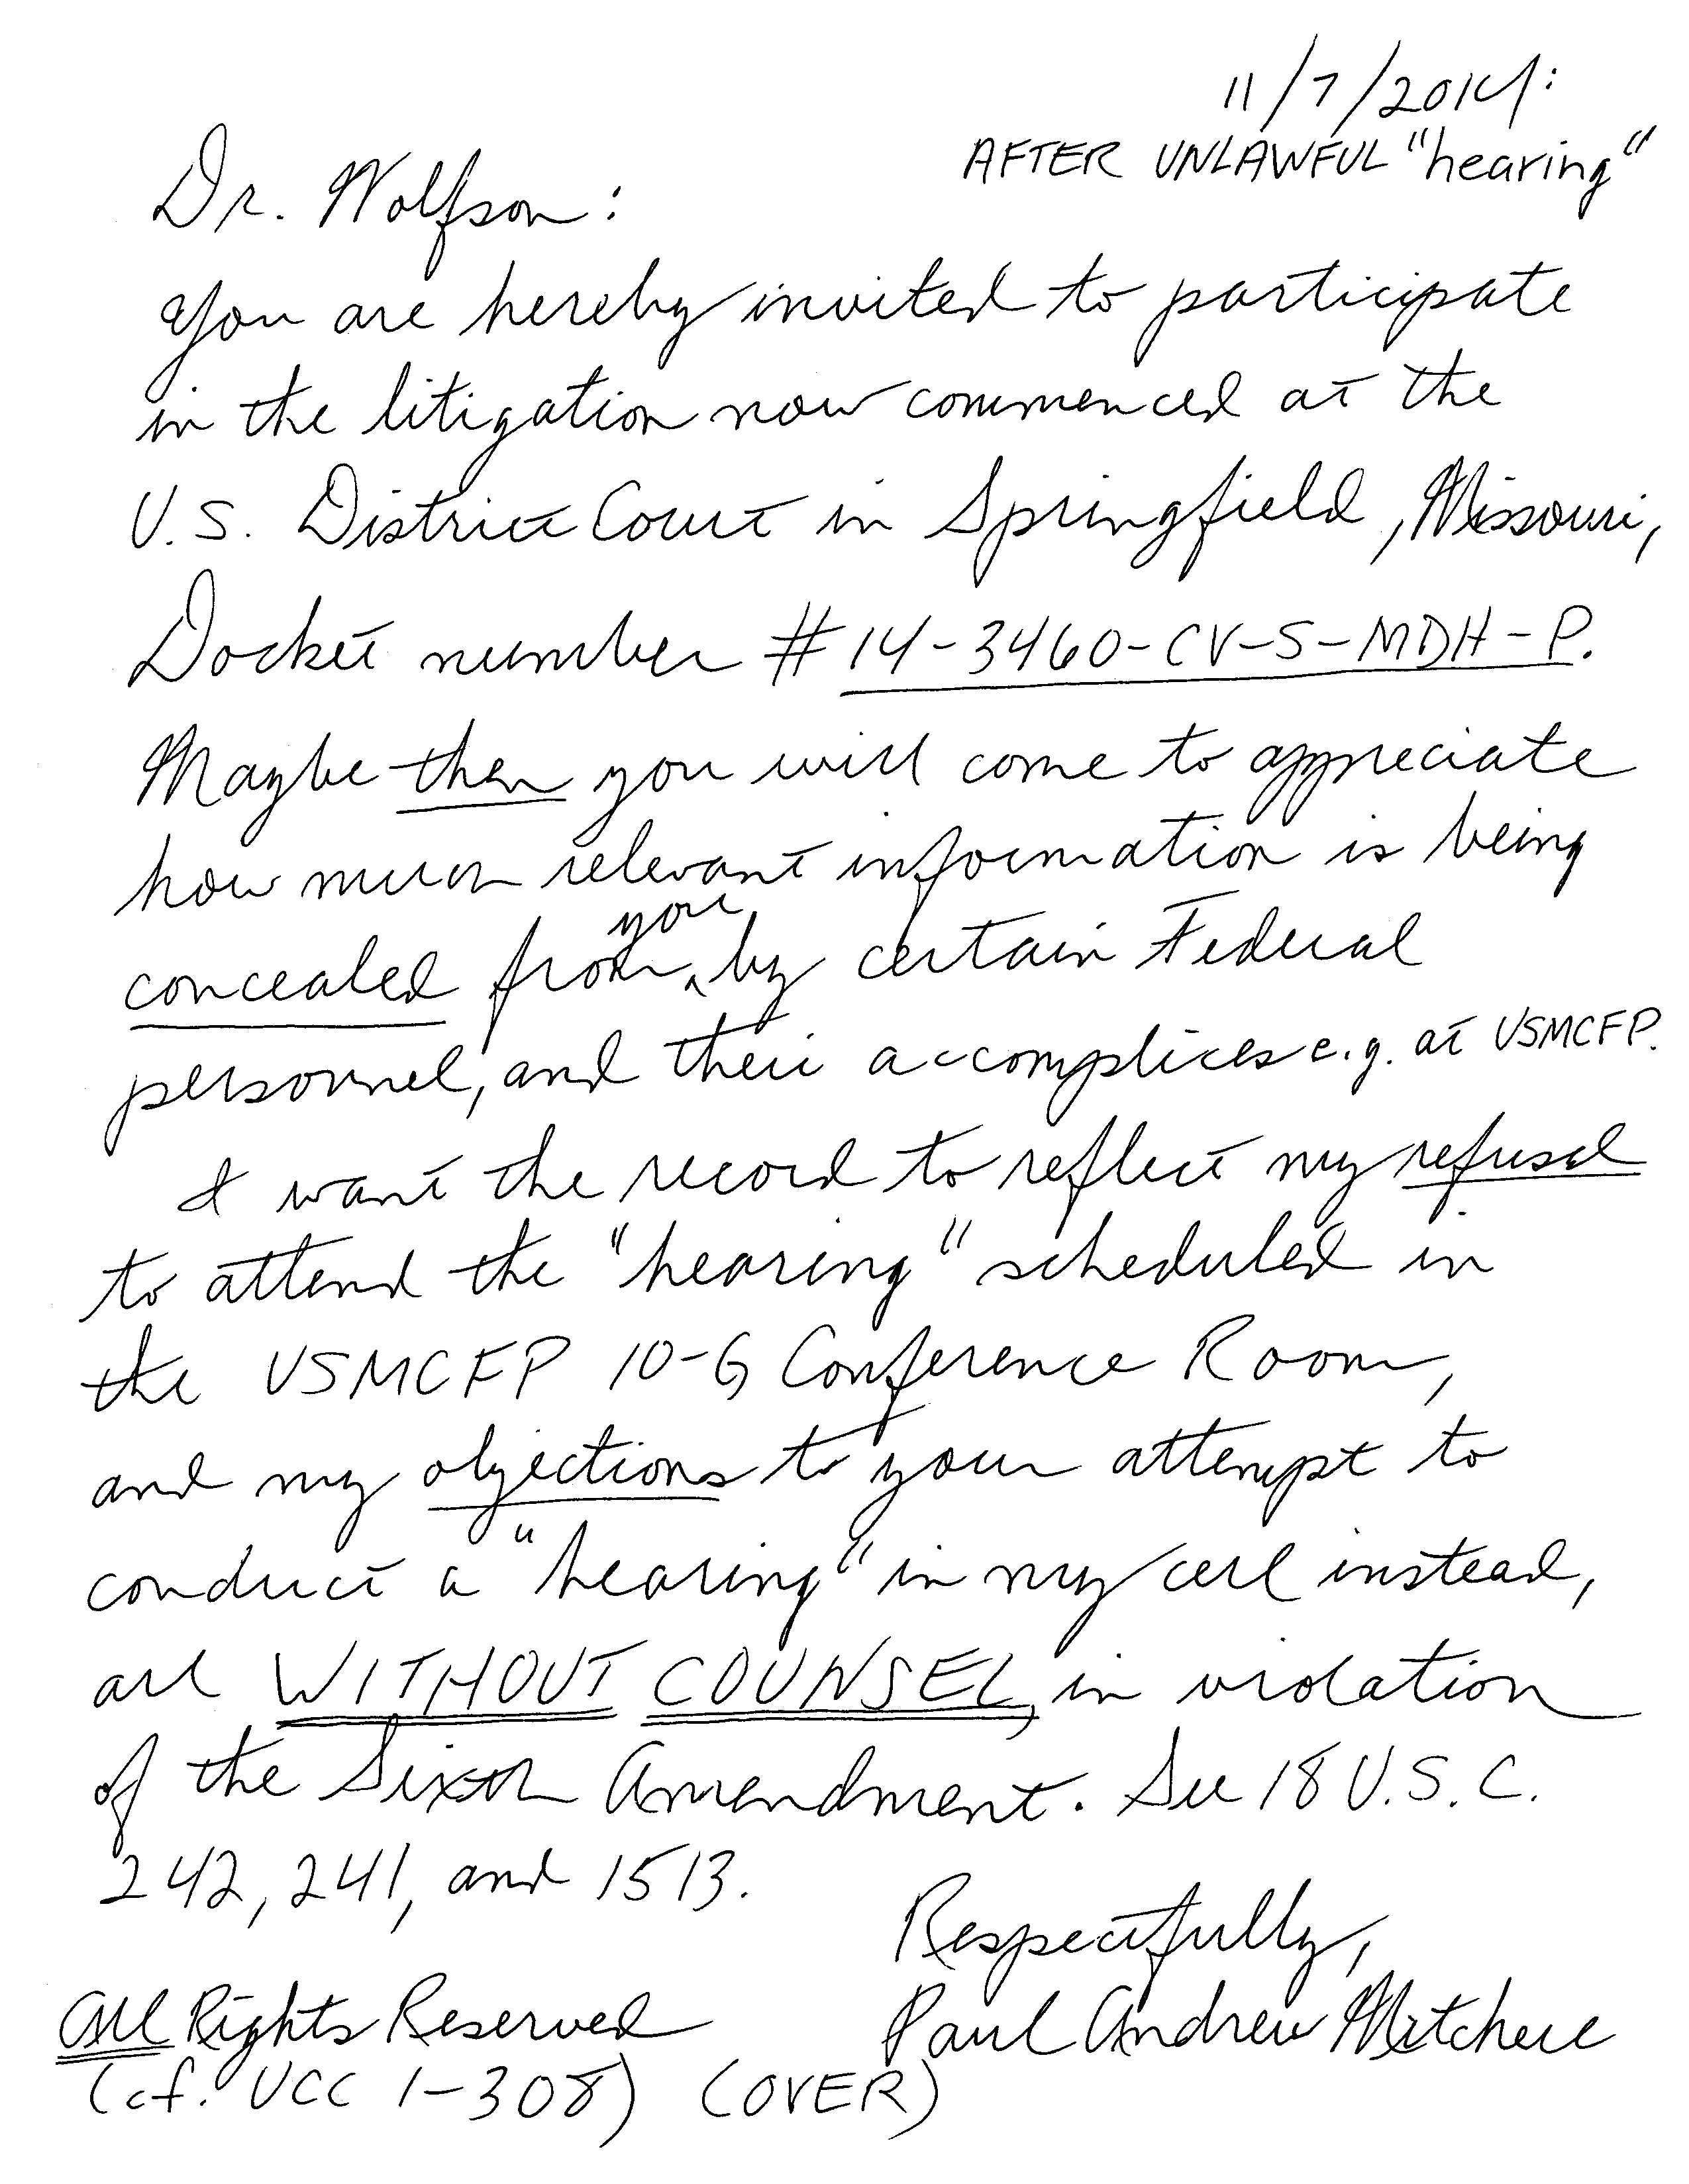 11/7/2014:
AFTER UNLAWFUL "hearing"
Dr. Wolfson:
You are hereby invited to participate
in the litigation now commenced at the
U.S. District Court in Springfield, Missouri,
Docket number #14-3460-CV-S-MDH-P.
Maybe then you will come to appreciate
how much relevant information is being
concealed from you by certain Federal
personnel, and their accomplices e.g. at USMCFP.
I want the record to reflect my refusal
to attend the "hearing" scheduled in
the USMCFP 10-G Conference Room,
and my objections to your attempt to
conduct a "hearing" in my cell instead,
all WITHOUT COUNSEL, in violation
of the Sixth Amendment. See 18 U.S.C.
242, 241, and 1513.
Respectfully,
All Rights Reserved Paul Andrew Mitchell
(cf. UCC 1-308) (OVER)